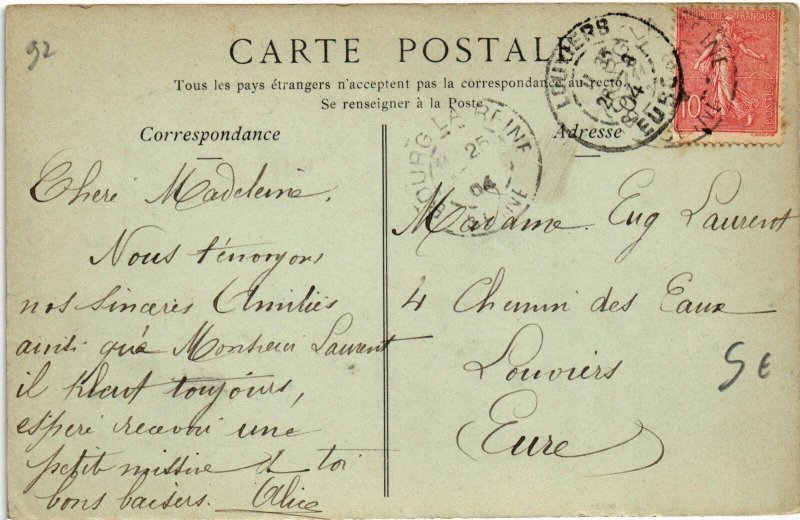 92
CARTE POSTALE
Tous les pays étrangers n'acceptent pas la correspondance au recto.
Se renseigner à la Poste
Correspondance
Adresse
Cheré Madeleine.
Nous t'envoyons
nos sincères Amitiés
ainsi qu'à Monsieur Laurent
il pleut toujours,
espere recevoir une
petit missive de toi
bons baisers. Alice
Madame Eug Laurent
4 Chemin des Eaux
Louviers
Eure
5€
LOUVIERS
EURE
25
04
BOURG-LA-REINE
25
04
SEINE
REPUBLIQUE FRANÇAISE
10
POSTES